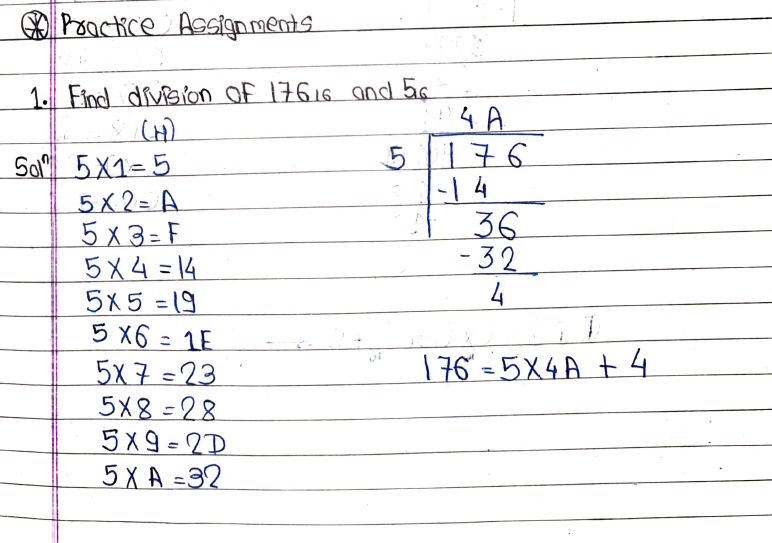 ⊛ Practice Assignments
1. Find division of 176₁₆ and 5₆
(H)
Solⁿ 5X1=5
5X2=A
5X3=F
5X4=14
5X5=19
5X6=1E
5X7=23
5X8=28
5X9=2D
5XA=32
4A
5 176
-14
36
-32
4
176=5X4A+4